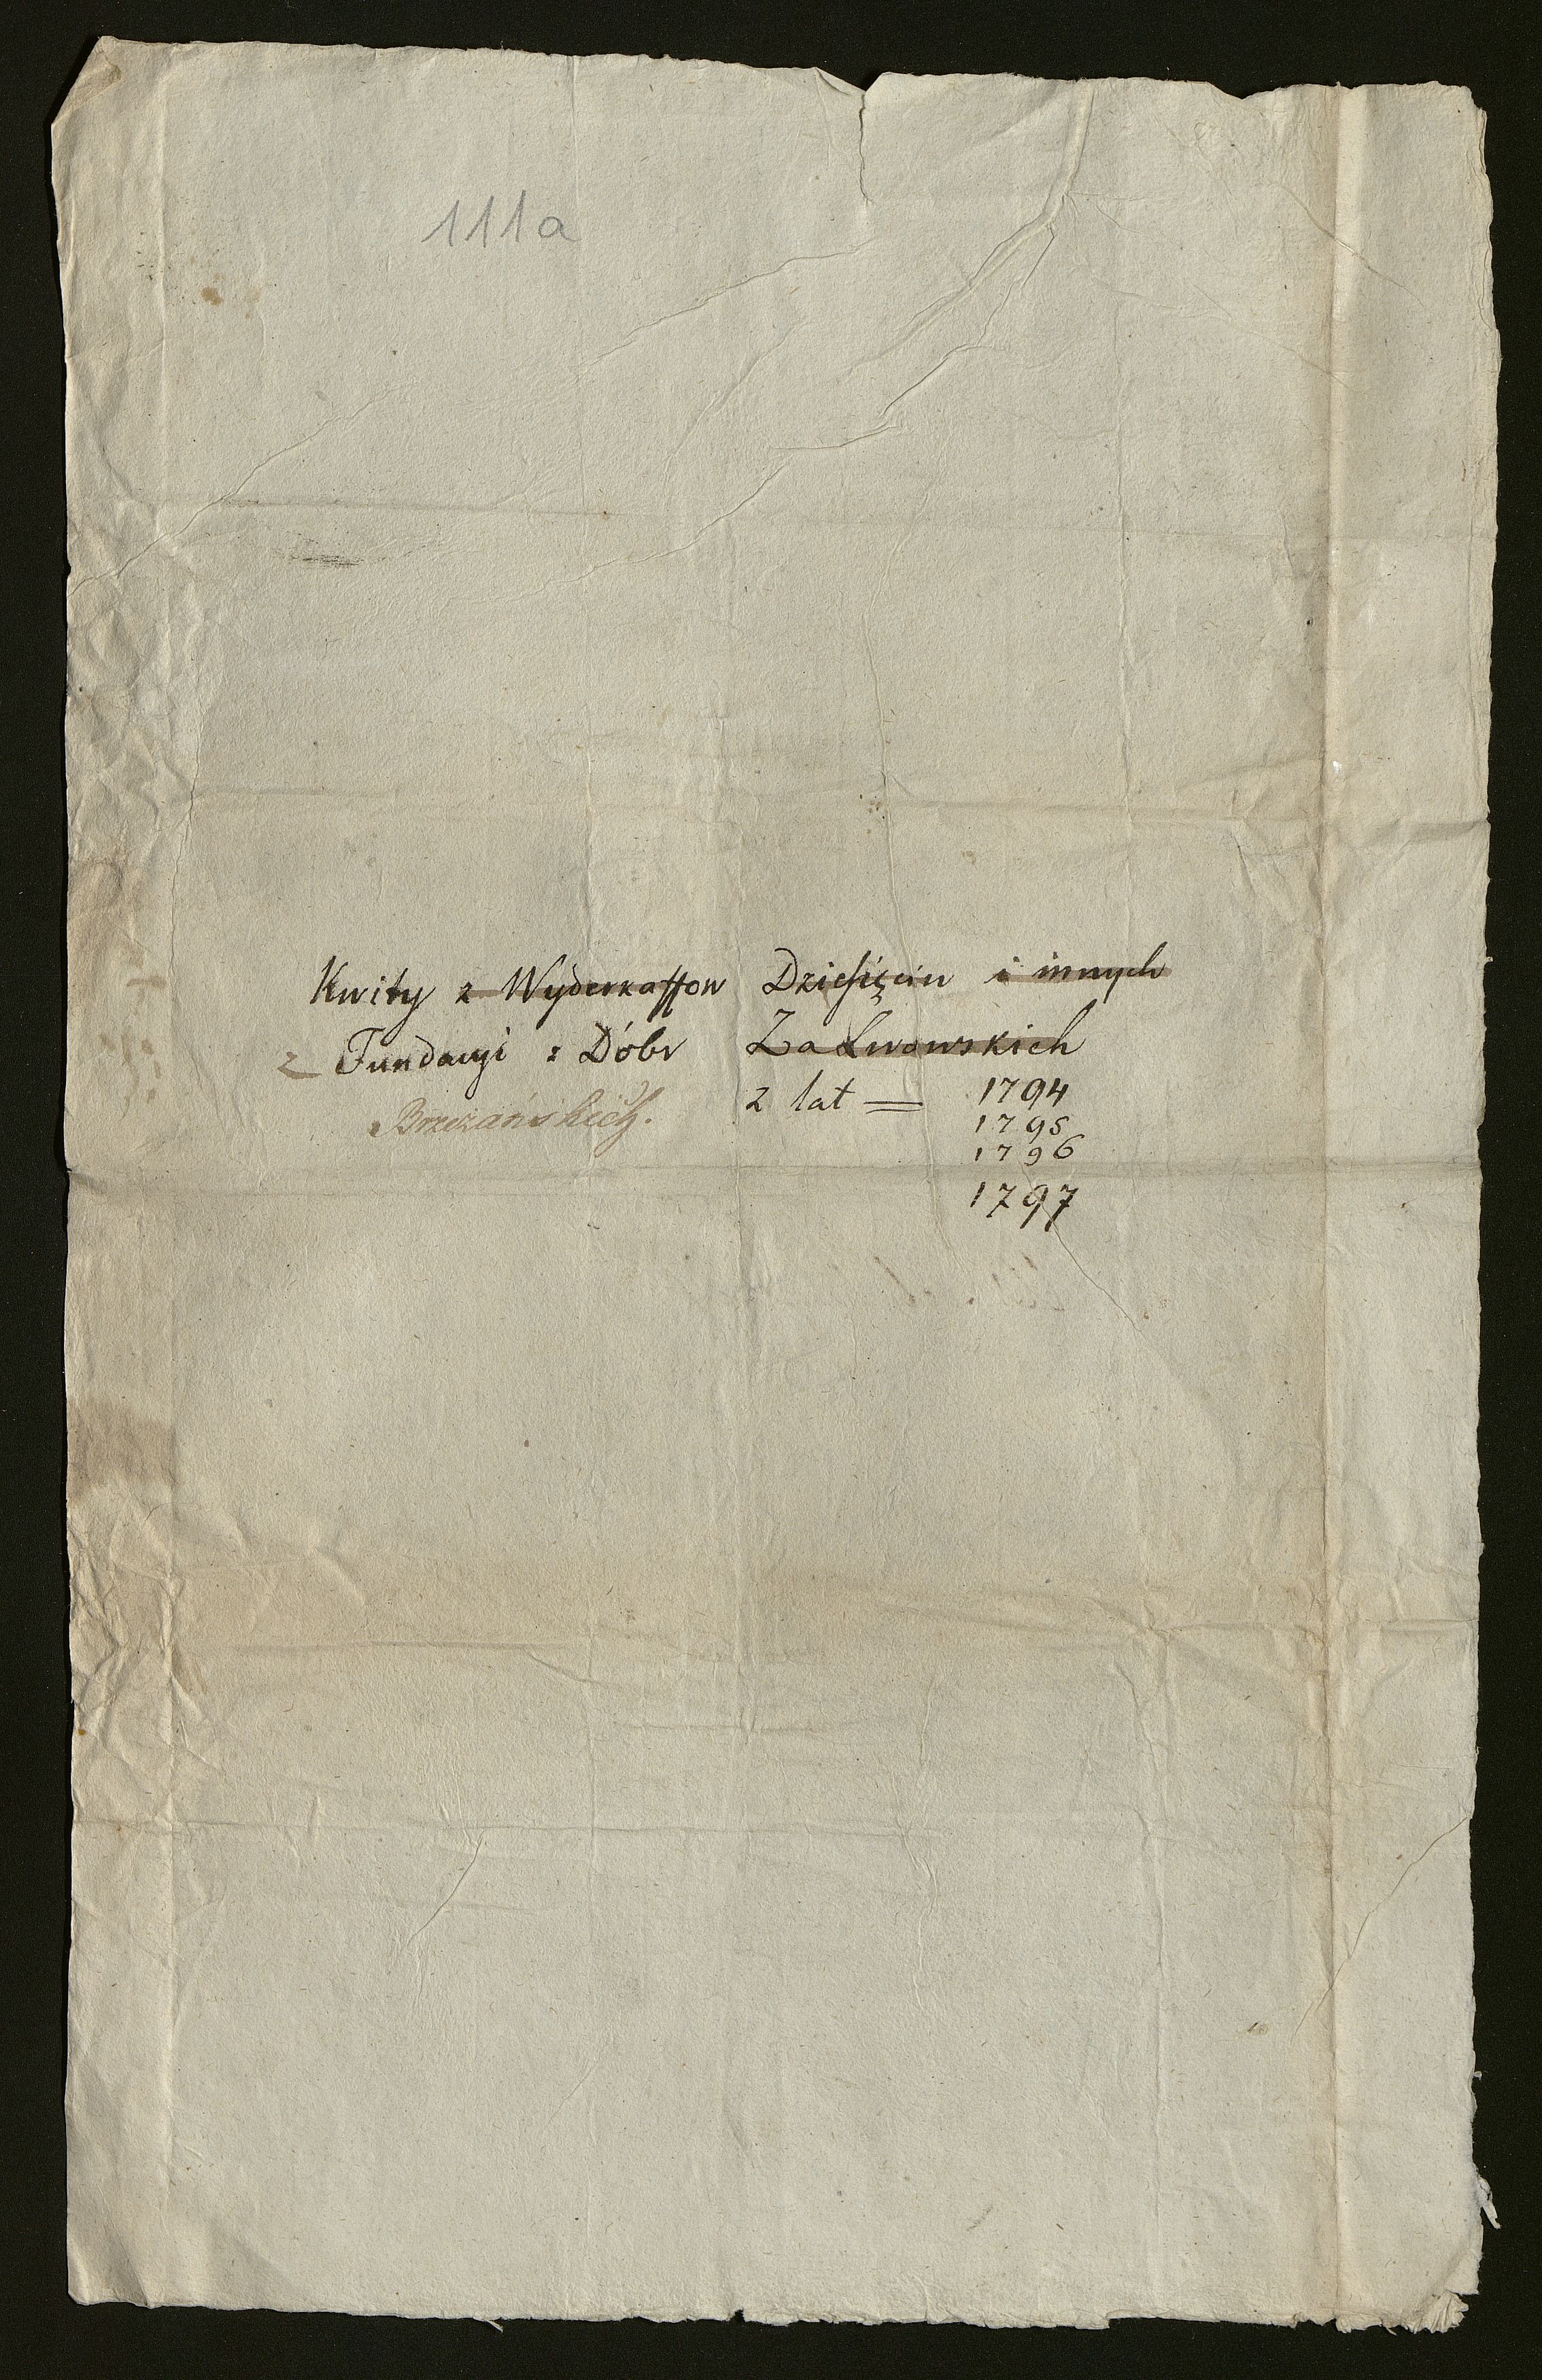 111a
Kwity z Wyderkaffow Dziesięcin i innych
z Fundacyi z Dóbr Za Lwowskich
Brzeżańskich. z lat = 1794
1795
1796
1797